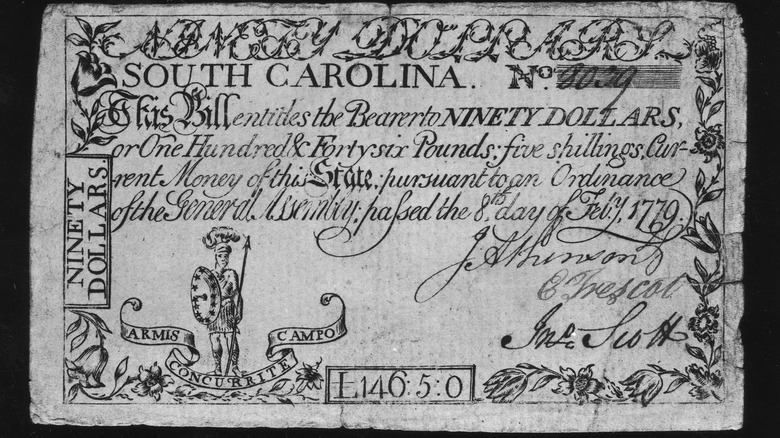 NINETY DOLLARS.
SOUTH CAROLINA. No.
This Bill entitles the Bearer to NINETY DOLLARS,
or One Hundred & Forty six Pounds; five shillings, Cur-
rent Money of this State; pursuant to an Ordinance
of the General Assembly; passed the 8th day of Feb.y, 1779.
NINETY
DOLLARS
J Atkinson
E Trescot
Jno. Scott
ARMIS CAMPO
CONCURRITE
£146:5:0